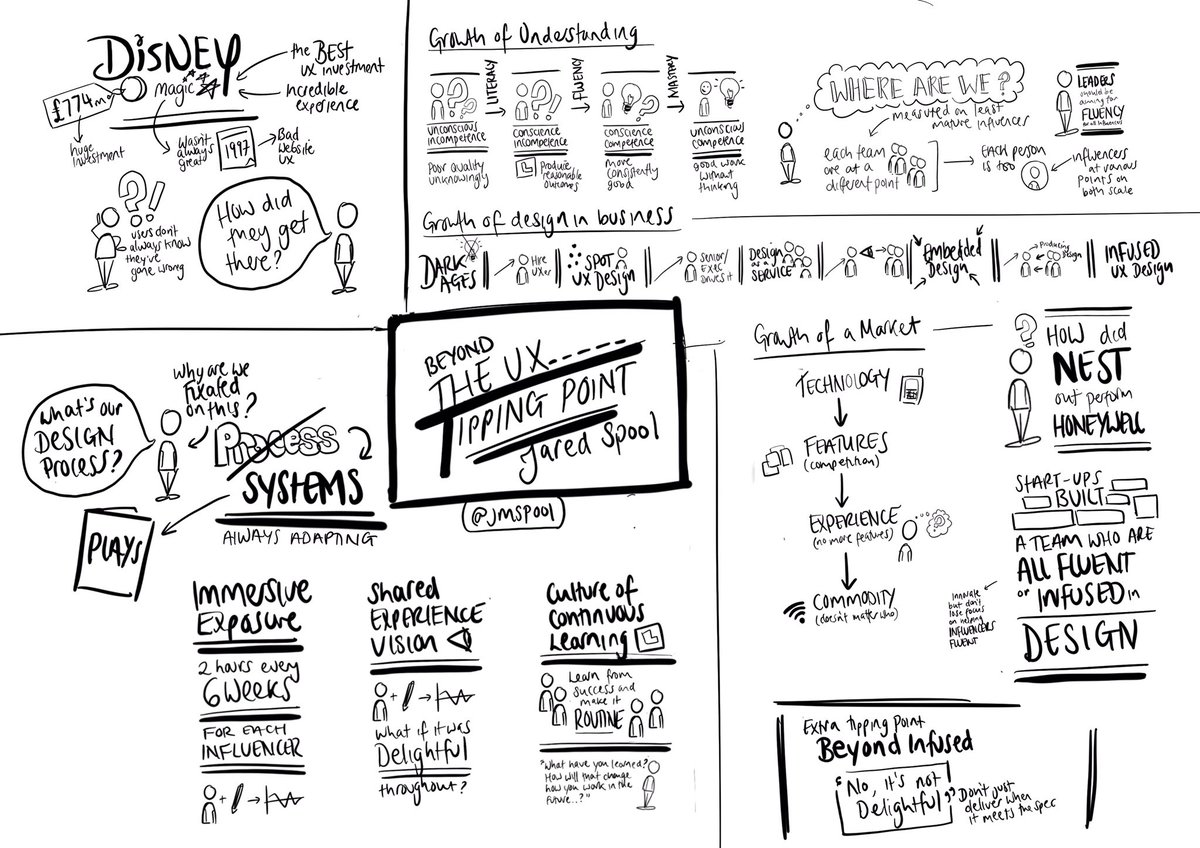 DiSNEY
the BEST
UX investment
incredible
experience
magic
£774m
huge
investment
Wasn't
always
great
1997
Bad
website
UX
users don't
always know
they've
gone wrong
How did
they get
there?
Growth of Understanding
LITERACY
FLUENCY
MASTERY
unconscious
incompetence
Poor quality
unknowingly
conscience
incompetence
Produce
reasonable
outcomes
conscience
competence
more
consistently
good
unconscious
competence
good work
without
thinking
WHERE ARE WE?
measured on least
mature influencer
each team
are at a
different point
EACH PERSON
IS TOO
influencers
at various
points on
both scale
LEADERS
should be
aiming for
FLUENCY
for all influencers
Growth of design in business
DARK
AGES
Hire
UXer
SPOT
UX DESIGN
senior/
exec
drives it
Design
as a
SERVICE
Embedded
Design
Producing
design
INFUSED
UX Design
BEYOND
THE UX
TIPPING POINT
Jared Spool
@jmspool
What's our
DESIGN
Process?
Why are we
fixated
on this?
Process
SYSTEMS
ALWAYS ADAPTING
PLAYS
Immersive
Exposure
2 hours every
6 WEEKS
FOR EACH
INFLUENCER
Shared
EXPERIENCE
VISION
What if it was
Delightful
throughout?
Culture of
Continuous
Learning
Learn from
success and
make it
ROUTINE
"What have you learned?
How will that change
how you work in the
future..?"
Growth of a Market
TECHNOLOGY
FEATURES
(competition)
EXPERIENCE
(no more features)
COMMODITY
(doesn't matter who)
HOW did
NEST
out perform
HONEYWELL
START-UPS
BUILT
A TEAM WHO ARE
ALL FLUENT
or INFUSED in
DESIGN
Innovate
but don't
lose focus
on helping
INFLUENCERS
FLUENT
Extra tipping point
Beyond Infused
"No, it's not
Delightful"
Don't just
deliver when
it meets the spec